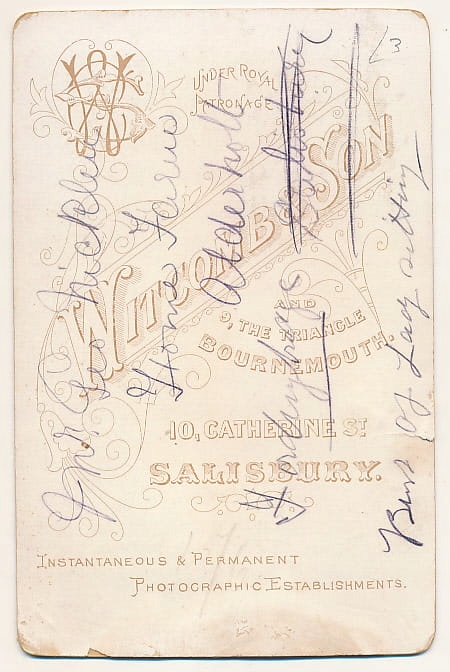 UNDER ROYAL
PATRONAGE
WITCOMB & SON
AND
9, THE TRIANGLE
BOURNEMOUTH.
10, CATHERINE ST
SALISBURY.
INSTANTANEOUS & PERMANENT
PHOTOGRAPHIC ESTABLISHMENTS.
Mrs Geo
Home Farm
Alderholt
Fordingbridge
Bust of Lady sitting
/3